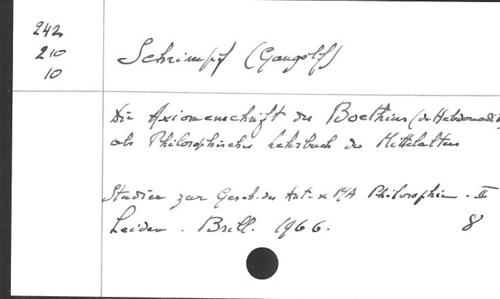 242
210
10
Schrimpf (Gangolf)
Die Axiomenschrift des Boethius (de Hebdomadibus)
als Philosophisches Lehrbuch des Mittelalters
Studien zur Gesch. des Ant. & MA Philosophie. II
Leiden. Brill. 1966. 8